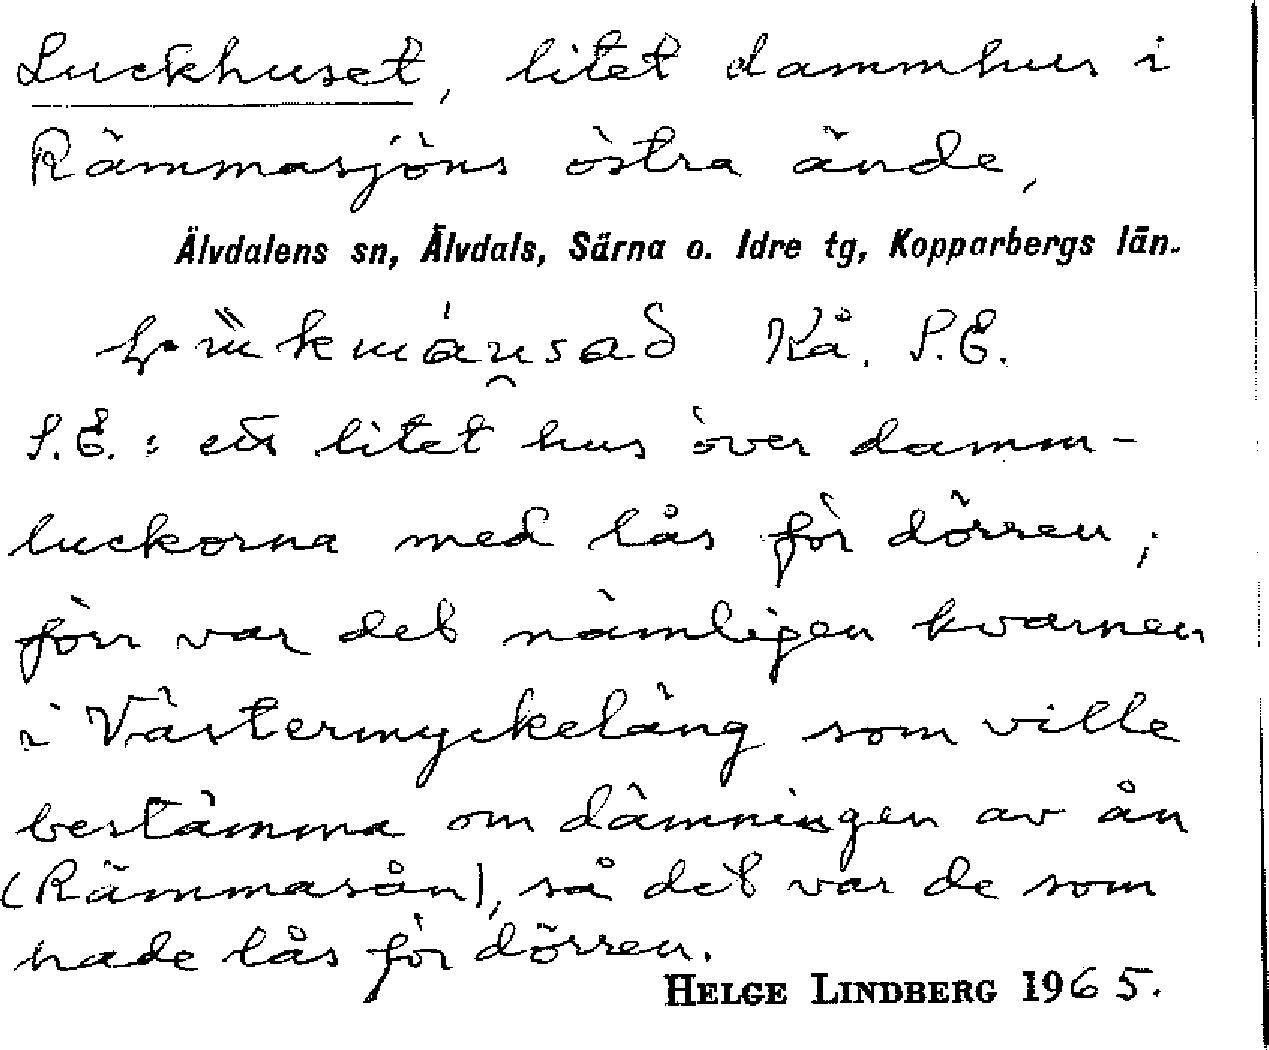 Luckhuset, litet dammhus i
Rämmasjöns östra ände,
Älvdalens sn, Älvdals, Särna o. Idre tg, Kopparbergs län.
Kå. S.E.
S.E.: ett litet hus över damm-
luckorna med lås för dörren;
förr var det nämligen kvarnen
i Västermyckeläng som ville
bestämma om dämningen av ån
(Rämmasån), så det var de som
hade lås för dörren.
HELGE LINDBERG 1965.